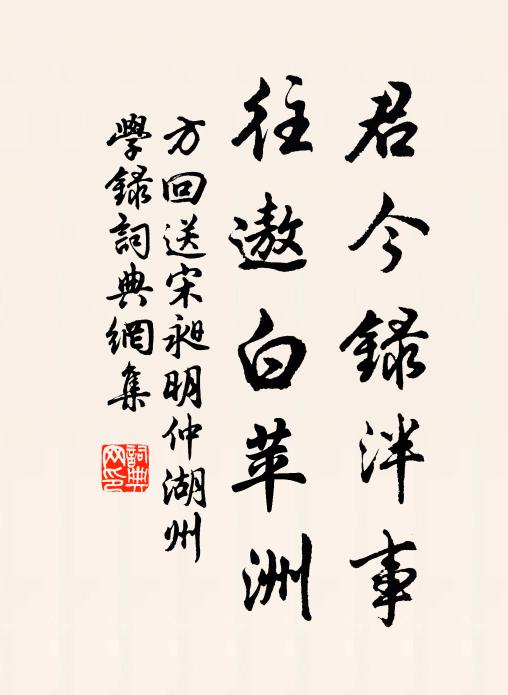 君今録泮事
往遨白苹洲
方回送宋昶明仲湖州
學録詞典網集
詞典网印